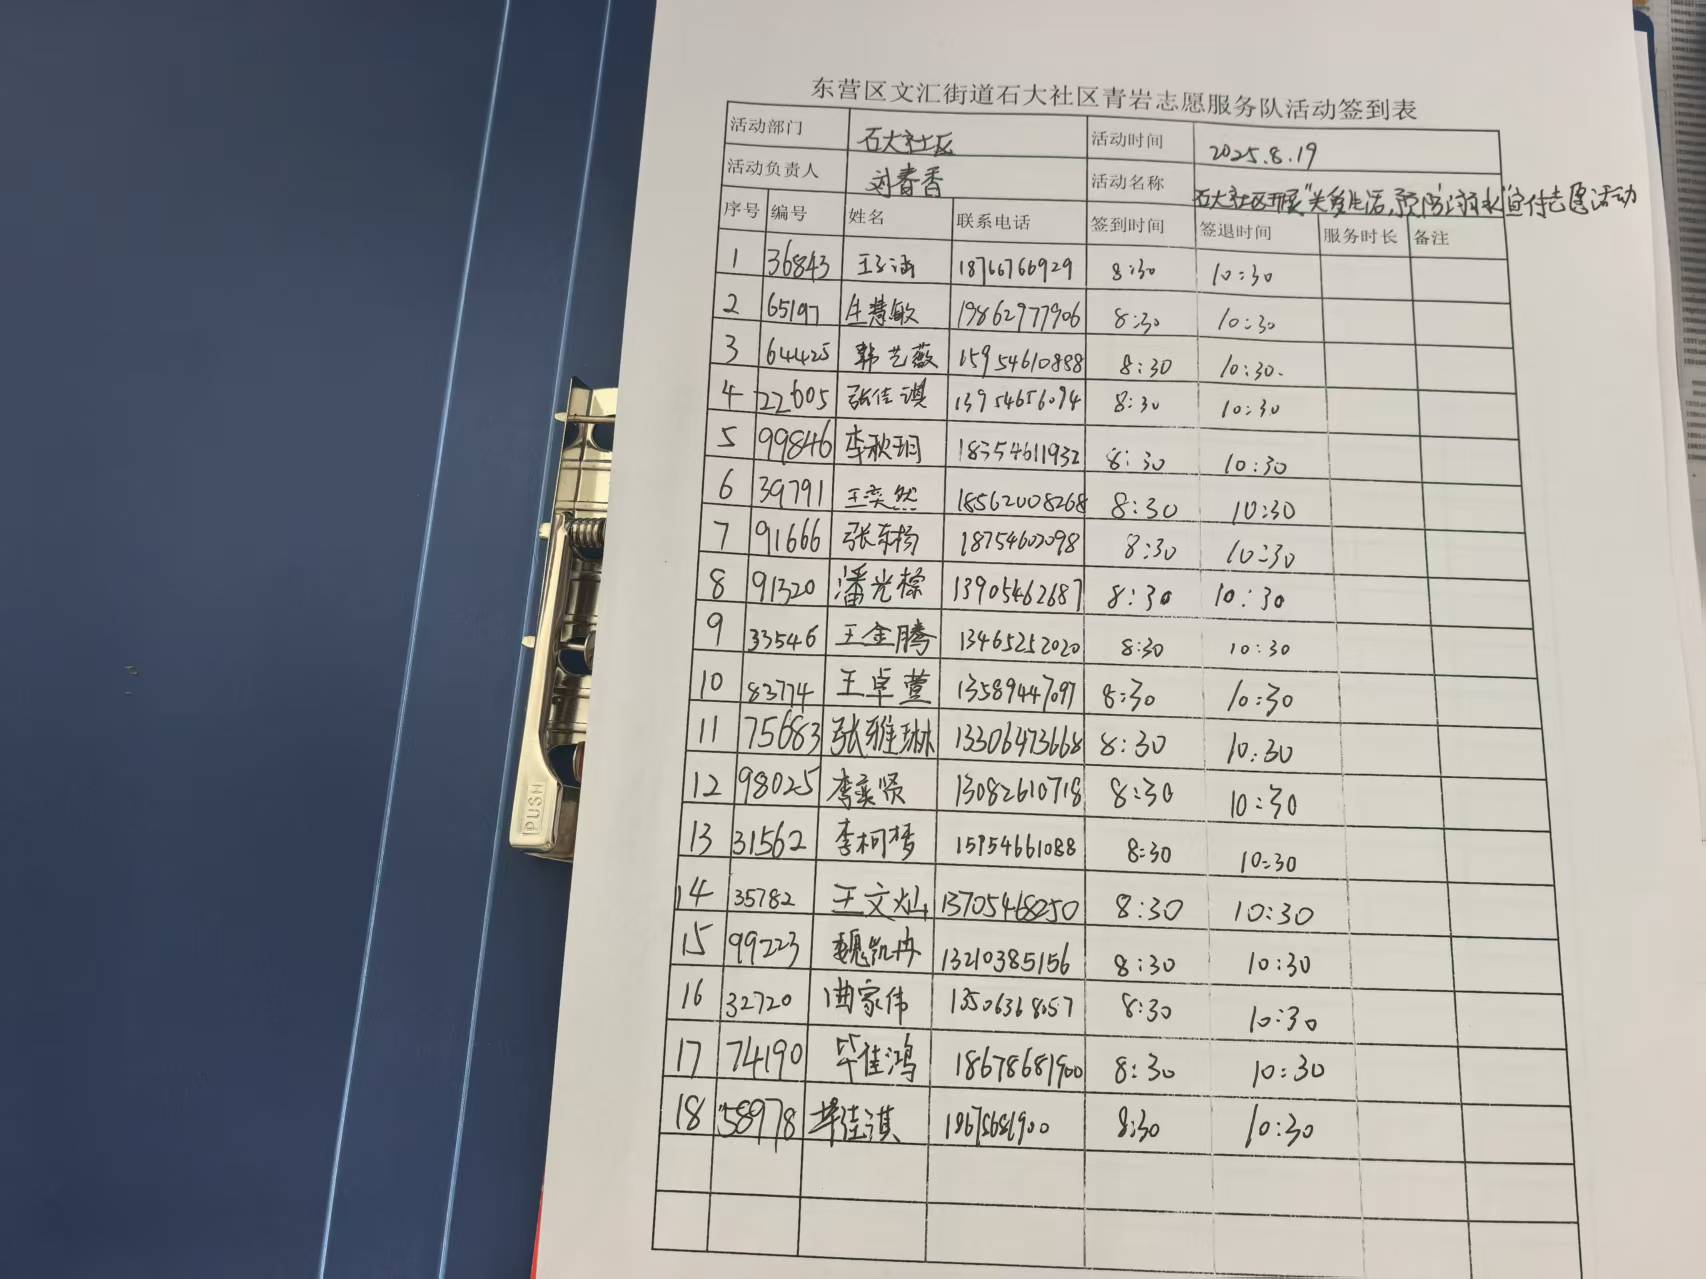 东营区文汇街道石大社区青岩志愿服务队活动签到表
活动部门 石大社区 活动时间 2025.8.19
活动负责人 刘春香 活动名称 石大社区开展"关爱生活,预防溺水"宣传志愿活动
序号 编号 姓名 联系电话 签到时间 签退时间 服务时长 备注
1 36843 王子涵 18766766929 8:30 10:30
2 65197 生慧敏 19862977906 8:30 10:30
3 64425 韩艺薇 15954610888 8:30 10:30.
4 22605 张佳淇 13954656094 8:30 10:30
5 99846 李秋玥 18354611932 8:30 10:30
6 39791 王奕然 18562008268 8:30 10:30
7 91666 张东杨 18754602098 8:30 10:30
8 91320 潘光樑 13905462687 8:30 10:30
9 33546 王金腾 13465252020 8:30 10:30
10 83774 王卓萱 13589447097 8:30 10:30
11 75683 张雅琳 13306473668 8:30 10:30
12 98025 李奕贤 13082610718 8:30 10:30
13 31562 李柯梦 15954661088 8:30 10:30
14 35782 王文灿 13705468250 8:30 10:30
15 99223 魏凯冉 13210385156 8:30 10:30
16 32720 曲家伟 13506368057 8:30 10:30
17 74190 毕佳鸿 18678681900 8:30 10:30
18 58978 毕佳淇 18678681900 8:30 10:30
PUSH